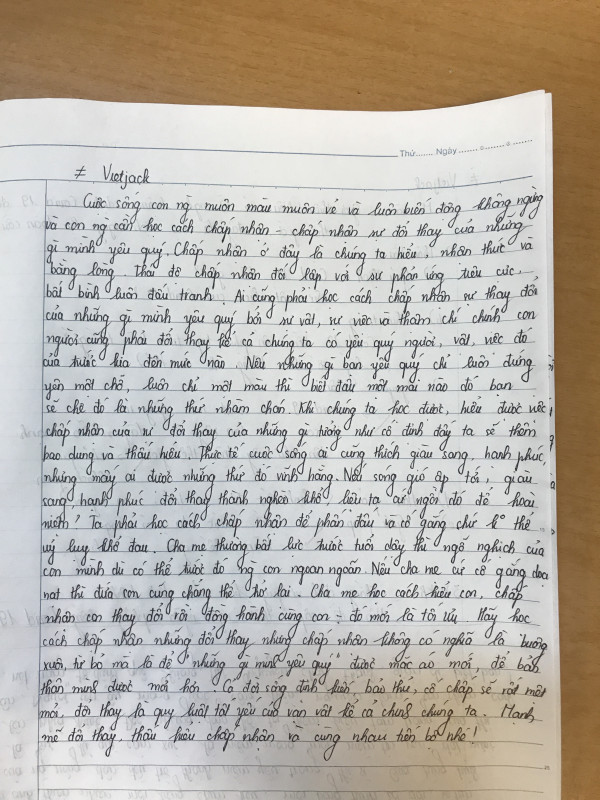 Thứ....... Ngày....... ........ .......
≠ Vietjack
Cuộc sống con ng muôn màu muôn vẻ và luôn biến động không ngừng
và con ng cần học cách chấp nhận - chấp nhận sự đổi thay của những
gì mình yêu quý. Chấp nhận ở đây là chúng ta hiểu, nhận thức và
bằng lòng. Thái độ chấp nhận đối lập với sự phản ứng tiêu cực,
bất bình luôn đấu tranh. Ai cũng phải học cách chấp nhận sự thay đổi
của những gì mình yêu quý bởi sự vật, sự việc và thậm chí chính con
người cũng phải đổi thay kể cả chúng ta có yêu quý người, vật, việc đó
của trước kia đến mức nào. Nếu những gì bạn yêu quý chỉ luôn đứng
yên một chỗ, luôn chỉ một màu thì bắt đầu một mai nào đó bạn
sẽ chê đó là những thứ nhàm chán. Khi chúng ta học được, hiểu được việc
chấp nhận của sự đổi thay của những gì tưởng như cố định đấy ta sẽ thêm
bao dung và thấu hiểu. Thực tế cuộc sống ai cũng thích giàu sang, hạnh phúc,
nhưng mấy ai được những thứ đó vĩnh hằng. Nếu sóng gió ập tới, giàu
sang hạnh phúc đổi thay thành nghèo khổ liệu ta cứ ngồi đó để hoài
niệm? Ta phải học cách chấp nhận để phấn đấu và cố gắng chứ k° thể
uỷ luỵ khổ đau. Cha mẹ thường bất lực trước tuổi dậy thì ngỗ nghịch của
con mình dù có thể trước đó ng con ngoan ngoãn. Nếu cha mẹ cứ cố gắng doạ
nạt thì đứa con cũng chẳng thể trở lại. Cha mẹ học cách hiểu con, chấp
nhận con thay đổi rồi đồng hành cùng con; đó mới là tối ưu. Hãy học
cách chấp nhận những đổi thay nhưng chấp nhận không có nghĩa là buông
xuôi, từ bỏ mà là để "những gì mình yêu quý" được mặc áo mới, để bản
thân mình được mới hơn. Cố đời sống định kiến, bảo thủ, cố chấp sẽ rất mệt
mỏi, đổi thay là quy luật tất yếu của vạn vật kể cả chính chúng ta. Mạnh
mẽ đổi thay, thấu hiểu chấp nhận và cùng nhau tiến bộ nhé!